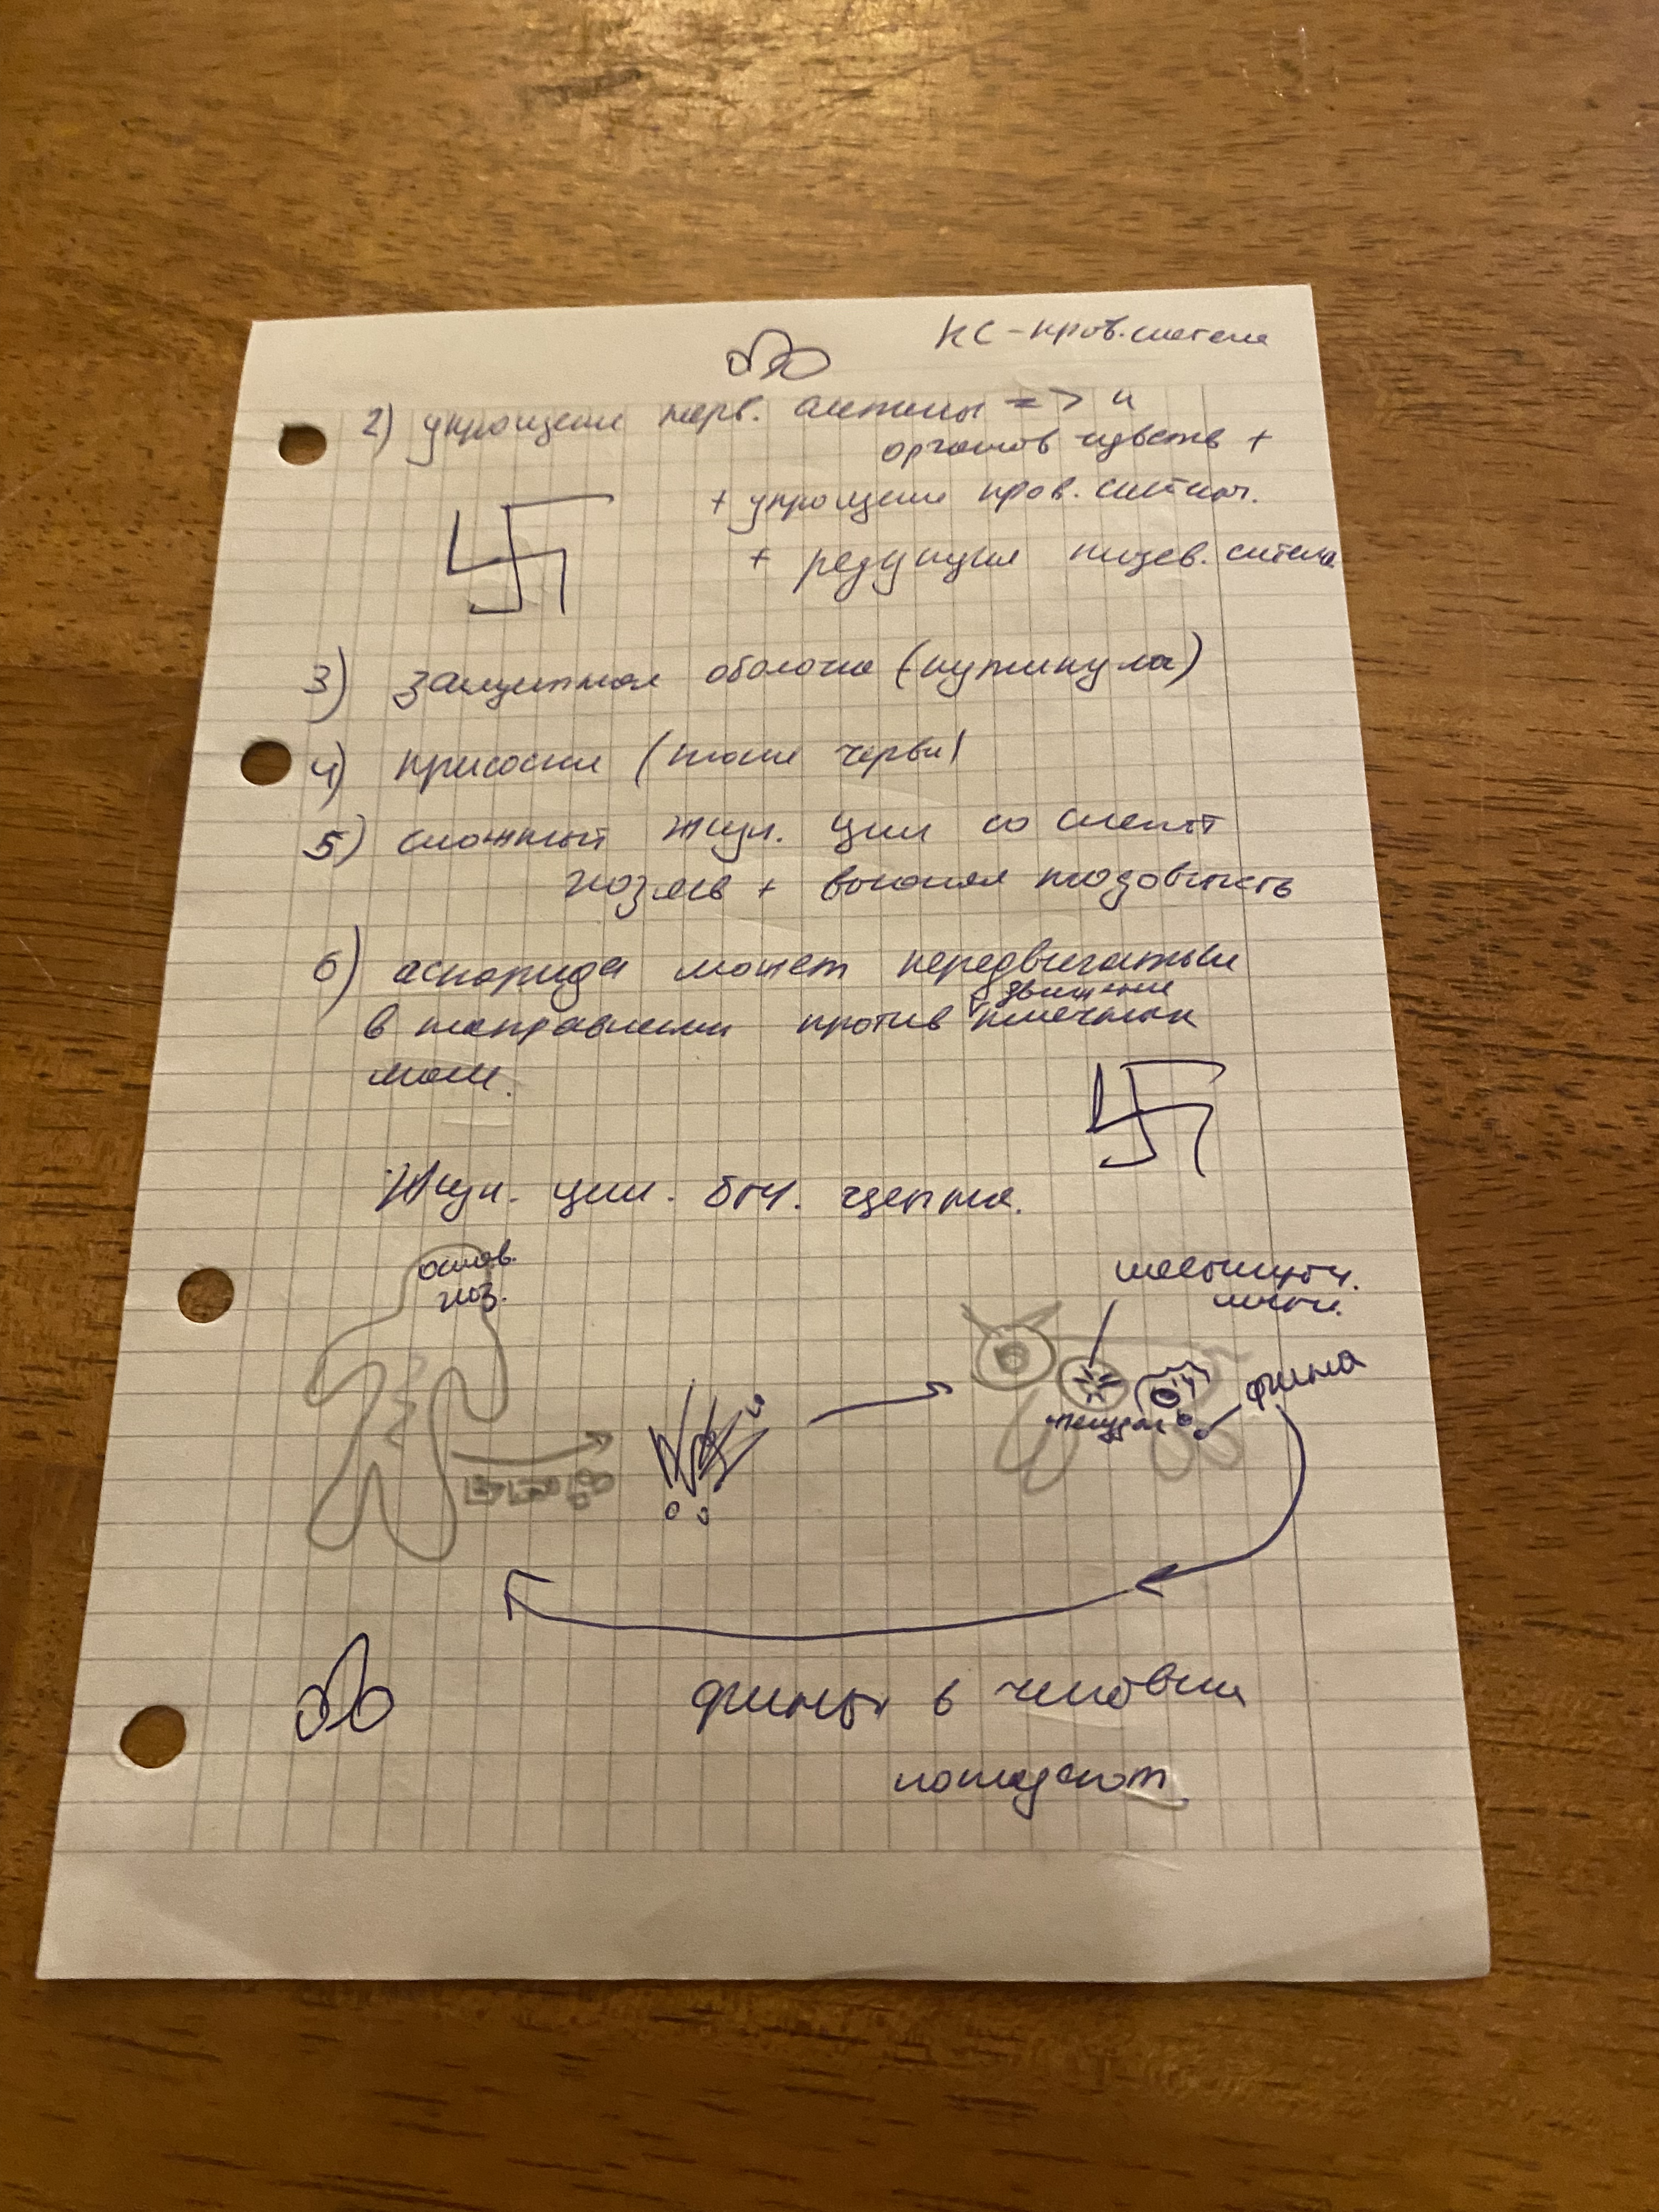 КС - кров. система
2) упрощение нерв. системы => и
органов чувств +
+ упрощение кров. систем.
+ редукция пищев. система
3) защитная оболочка (кутикула)
4) присоски (плоские черви)
5) сложный жизн. цикл со сменой
хозяев + высокая плодовитость
6) аскарида может передвигаться
в направлении против движения
Жизн. цикл. быч. цепня.
основ.
хоз.
финна
желудок
финны в человека
попадают